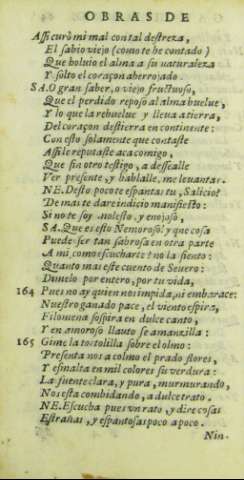 OBRAS DE
Assi curò mi mal con tal destreza,
El sabio viejo (como te he contado)
Que boluio el alma a su naturaleza
Y solto el coraçon aherrojado.
SA. O gran saber, o viejo fructuoso,
Que el perdido reposo al alma buelue,
Y lo que la rebuelue y lleua a tierra,
Del coraçon destierra en continente:
Con esto solamente que contaste
Assi le reputaste aca comigo,
Que sin otro testigo, a dessealle
Ver presente, y hablalle, me leuantas.
NE. Desto poco te espantas tu, Salicio?
De mas te dare indicio manifiesto:
Si no te soy molesto, y enojoso,
SA. Que es esto Nemoroso? y que cosa
Puede ser tan sabrosa en otra parte
A mi, como escucharte? no la siento:
Quanto mas este cuento de Seuero:
Dimelo por entero, por tu vida,
164 Pues no ay quien nos impida, ni embarace:
Nuestro ganado pace, el viento espira,
Filomena sospira en dulce canto,
Y en amoroso llanto se amanzilla:
165 Gime la tortolilla sobre el olmo:
Presenta nos a colmo el prado flores,
Y esmalta en mil colores su verdura:
La fuente clara, y pura, murmurando,
Nos esta combidando, a dulce trato.
NE. Escucha pues vn rato, y dire cosas
Estrañas, y espantosas poco a poco.
Nin-